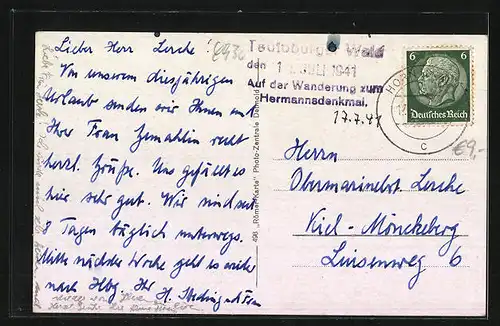 Lieber Herr Lerche!
Von unserem diesjährigen
Urlaub senden wir Ihnen u.
Ihrer Frau Gemahlin recht
herzl. Grüße. Uns gefällt es
hier sehr gut. Wir sind seit
8 Tagen täglich unterwegs.
Mitte nächster Woche geht es wieder
nach Hbg. Ihr H. u. Frau
€936
Teutoburger Wald
den 1 JULI 1941
Auf der Wanderung zum
Hermannsdenkmal.
17.7.41
6 6
Deutsches Reich
HOR
c
€9,-
498 "Römer-Karte" Photo-Zentrale Detmold
Herrn
Obermarinebrt. Lerche
Kiel-Mönckeberg
Linsenweg 6